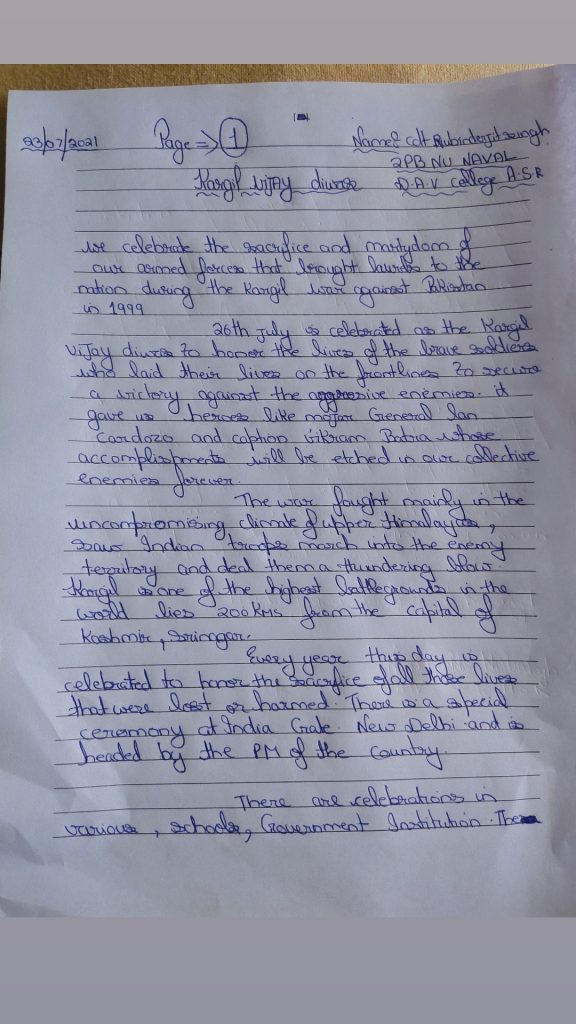 23/07/2021 Page => 1 Name: Cdt Rubinderjit singh
2PB NU NAVAL
Kargil vijay diwas D.A.V college A.S.R
we celebrate the sacrifice and martydom of
our armed forces that brought laurels to the
nation during the Kargil war against Pakistan
in 1999
26th july is celebrated as the Kargil
vijay diwas to honor the lives of the brave soldiers
who laid their lives on the frontlines to secure
a victory against the aggresive enemies. it
gave us heroes like major General Ian
Cardozo and caption vikram Batra whose
accomplishments will be etched in our collective
enemies forever.
The war fought mainly in the
uncompromising climate of upper Himalayas,
saw Indian troops march into the enemy
territory and deal them a thundering blow.
Kargil is one of the highest battlegrounds in the
world lies 200 Kms from the capital of
Kashmir, srinagar.
Every year this day is
celebrated to honor the sacrifice of all those lives
that were lost or harmed. There is a special
ceremony at India Gate. New Delhi and is
headed by the PM of the country.
There are celebrations in
various, schools, Government Institution. The